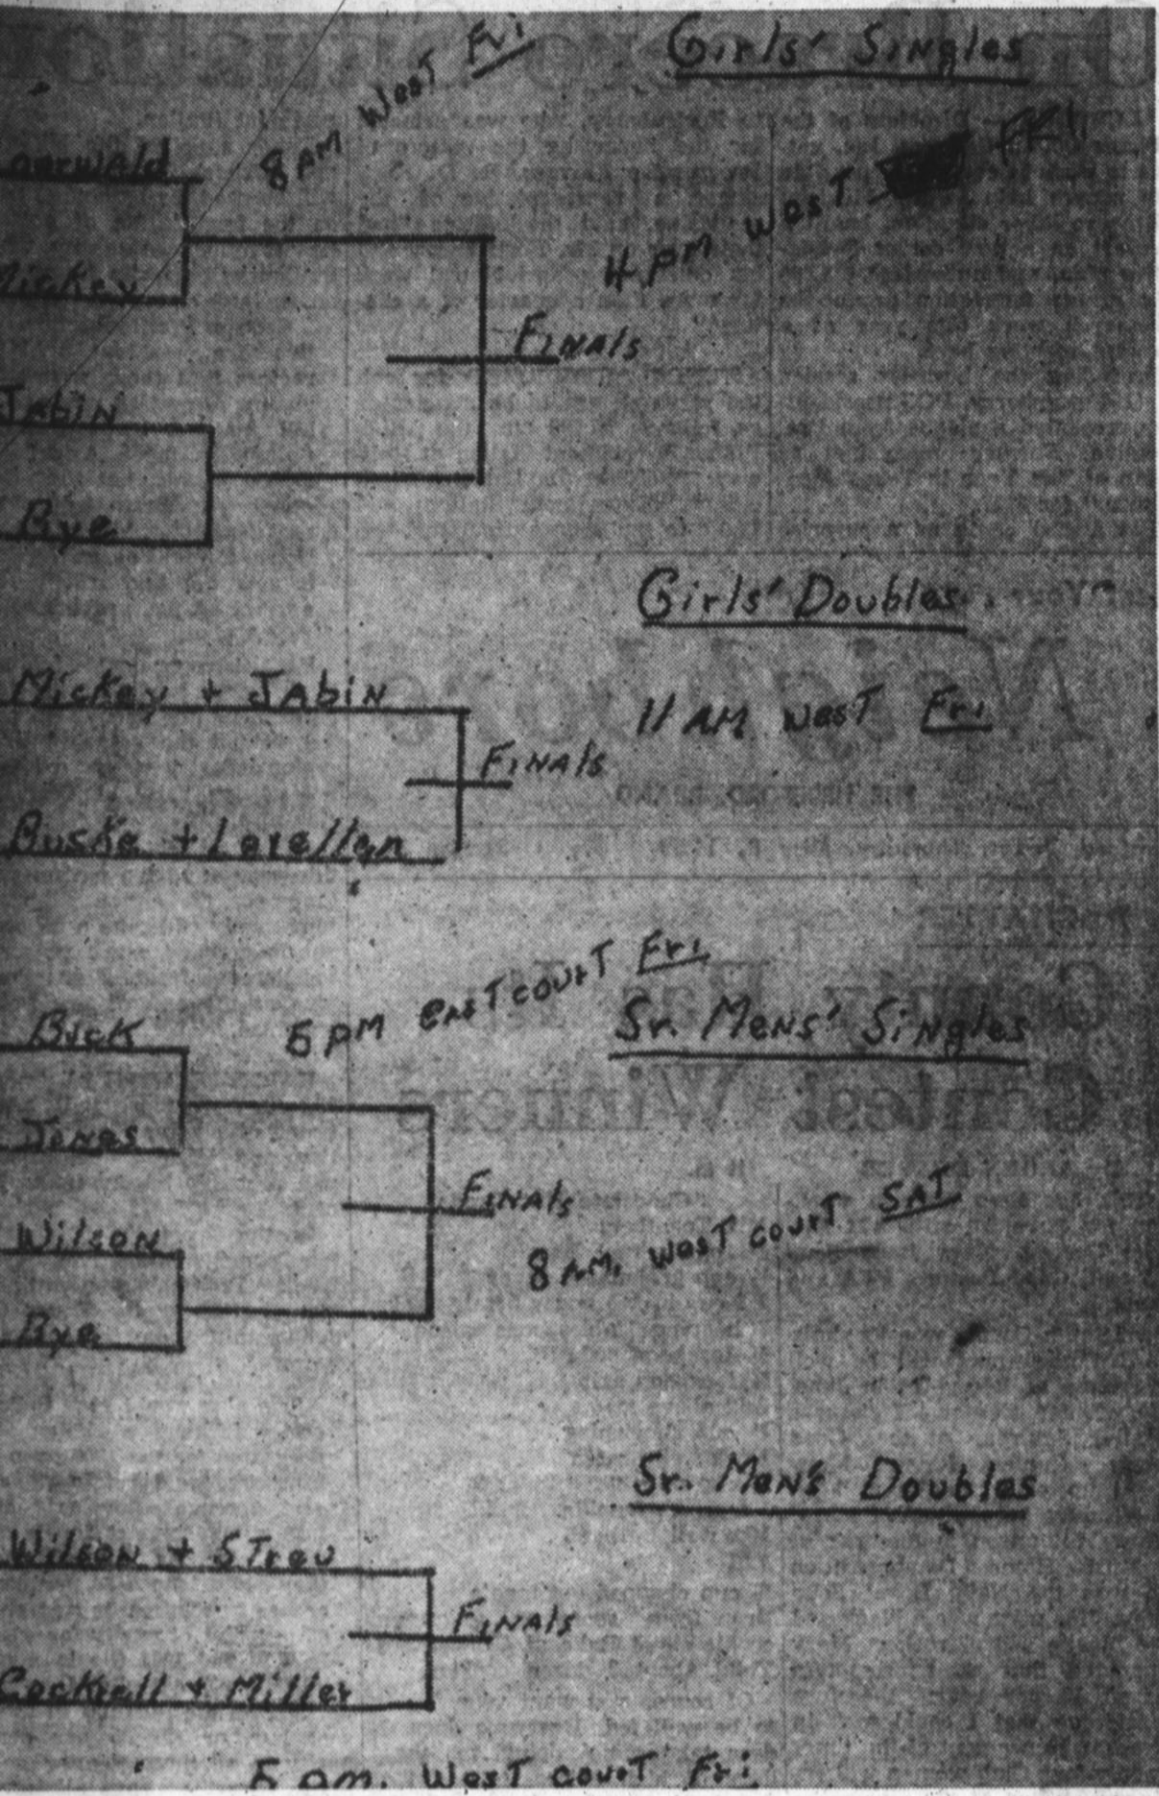 Girls' Singles
8 AM West Fri
4 PM West FRI.
Mickey
Finals
Jabin
Bye
Girls' Doubles
Mickey + Jabin
11 AM West Fri
Finals
Buske + Lovellan
5 PM east court Fri
Sr. Mens' Singles
Buck
Jones
Finals
Wilson
8 AM. West court SAT
Bye
Sr. Men's Doubles
Wilson + Streu
Finals
Cockrell + Miller
5 pm. West court Fri